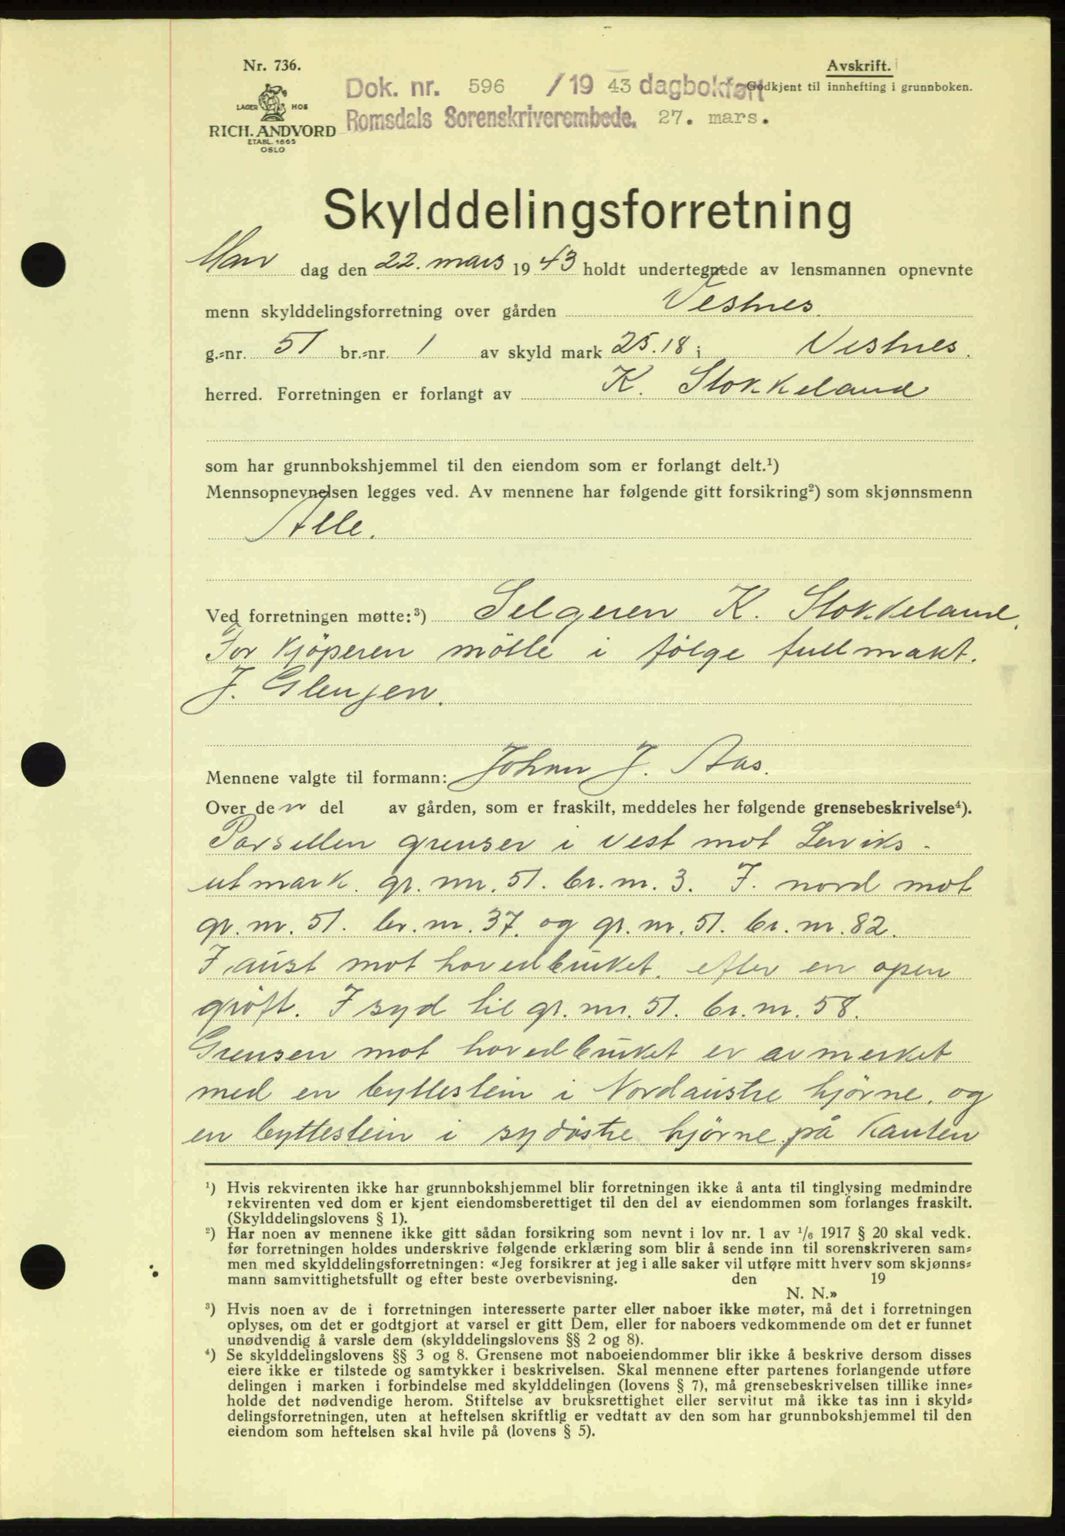 Nr. 736.
LAGER HOS
RICH. ANDVORD
ETABL. 1865
OSLO
Dok. nr. 596 /19 43 dagbokført
Romsdals Sorenskriverembede. 27. mars.
Avskrift.
Godkjent til innhefting i grunnboken.
Skylddelingsforretning
Man dag den 22. mars 19 43 holdt undertegnede av lensmannen opnevnte
menn skylddelingsforretning over gården Vestnes
g.=nr. 51 br.=nr. 1 av skyld mark 25.18 i Vestnes.
herred. Forretningen er forlangt av K. Stokkeland
som har grunnbokshjemmel til den eiendom som er forlangt delt.¹)
Mennsopnevnelsen legges ved. Av mennene har følgende gitt forsikring²) som skjønnsmenn
Alle.
Ved forretningen møtte:³) Selgeren K. Stokkeland.
For kjöperen mötte i fölge fullmakt.
J. Glenjen.
Mennene valgte til formann: Johan J. Aas.
Over den del av gården, som er fraskilt, meddeles her følgende grensebeskrivelse⁴).
Parsellen grenser i vest mot Lerviks
utmark. gr. nr. 51. br. nr. 3. I nord mot
gr. nr. 51. br. nr. 37. og gr. nr. 51. br. nr. 82.
I aust mot hovedbruket. efter en open
gröft. I syd til gr. nr. 51. br. nr. 58.
Grensen mot hovedbruket er avmerket
med en byttestein i Nordaustre hjörne. og
en byttestein i sydöstre hjörne på kanten
¹) Hvis rekvirenten ikke har grunnbokshjemmel blir forretningen ikke å anta til tinglysing medmindre
rekvirenten ved dom er kjent eiendomsberettiget til den del av eiendommen som forlanges fraskilt.
(Skylddelingslovens § 1).
²) Har noen av mennene ikke gitt sådan forsikring som nevnt i lov nr. 1 av ¹/₆ 1917 § 20 skal vedk.
før forretningen holdes underskrive følgende erklæring som blir å sende inn til sorenskriveren sam=
men med skylddelingsforretningen: «Jeg forsikrer at jeg i alle saker vil utføre mitt hverv som skjønns=
mann samvittighetsfullt og efter beste overbevisning. den 19
N. N.»
³) Hvis noen av de i forretningen interesserte parter eller naboer ikke møter, må det i forretningen
oplyses, om det er godtgjort at varsel er gitt Dem, eller for naboers vedkommende om det er funnet
unødvendig å varsle dem (skylddelingslovens §§ 2 og 8).
⁴) Se skylddelingslovens §§ 3 og 8. Grensene mot naboeiendommer blir ikke å beskrive dersom disses
eiere ikke er tilstede og samtykker i beskrivelsen. Skal mennene efter partenes forlangende utføre
delingen i marken i forbindelse med skylddelingen (lovens § 7), må grensebeskrivelsen tillike inne=
holde det nødvendige herom. Stiftelse av bruksrettighet eller servitut må ikke tas inn i skyld=
delingsforretningen, uten at heftelsen skriftlig er vedtatt av den som har grunnbokshjemmel til den
eiendom som heftelsen skal hvile på (lovens § 5).